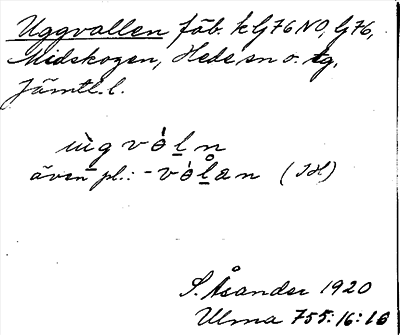 Uggvallen fäb. k G76 NO, G76,
Midskogen, Hede sn o. tg,
Jämtl. l.
ùg vòḷn
även pl.: -vòḷan (JH)
S. Åsander 1920
Ulma 755:16:18